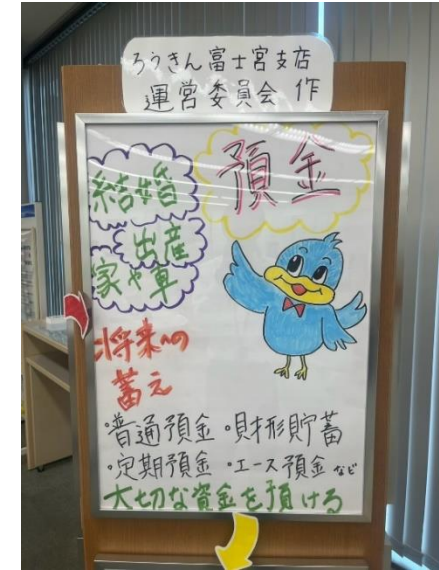 ろうきん富士宮支店
運営委員会 作
預金
結婚
出産
家や車
将来への
蓄え
・普通預金 ・財形貯蓄
・定期預金 ・エース預金 など
大切な資金を預ける